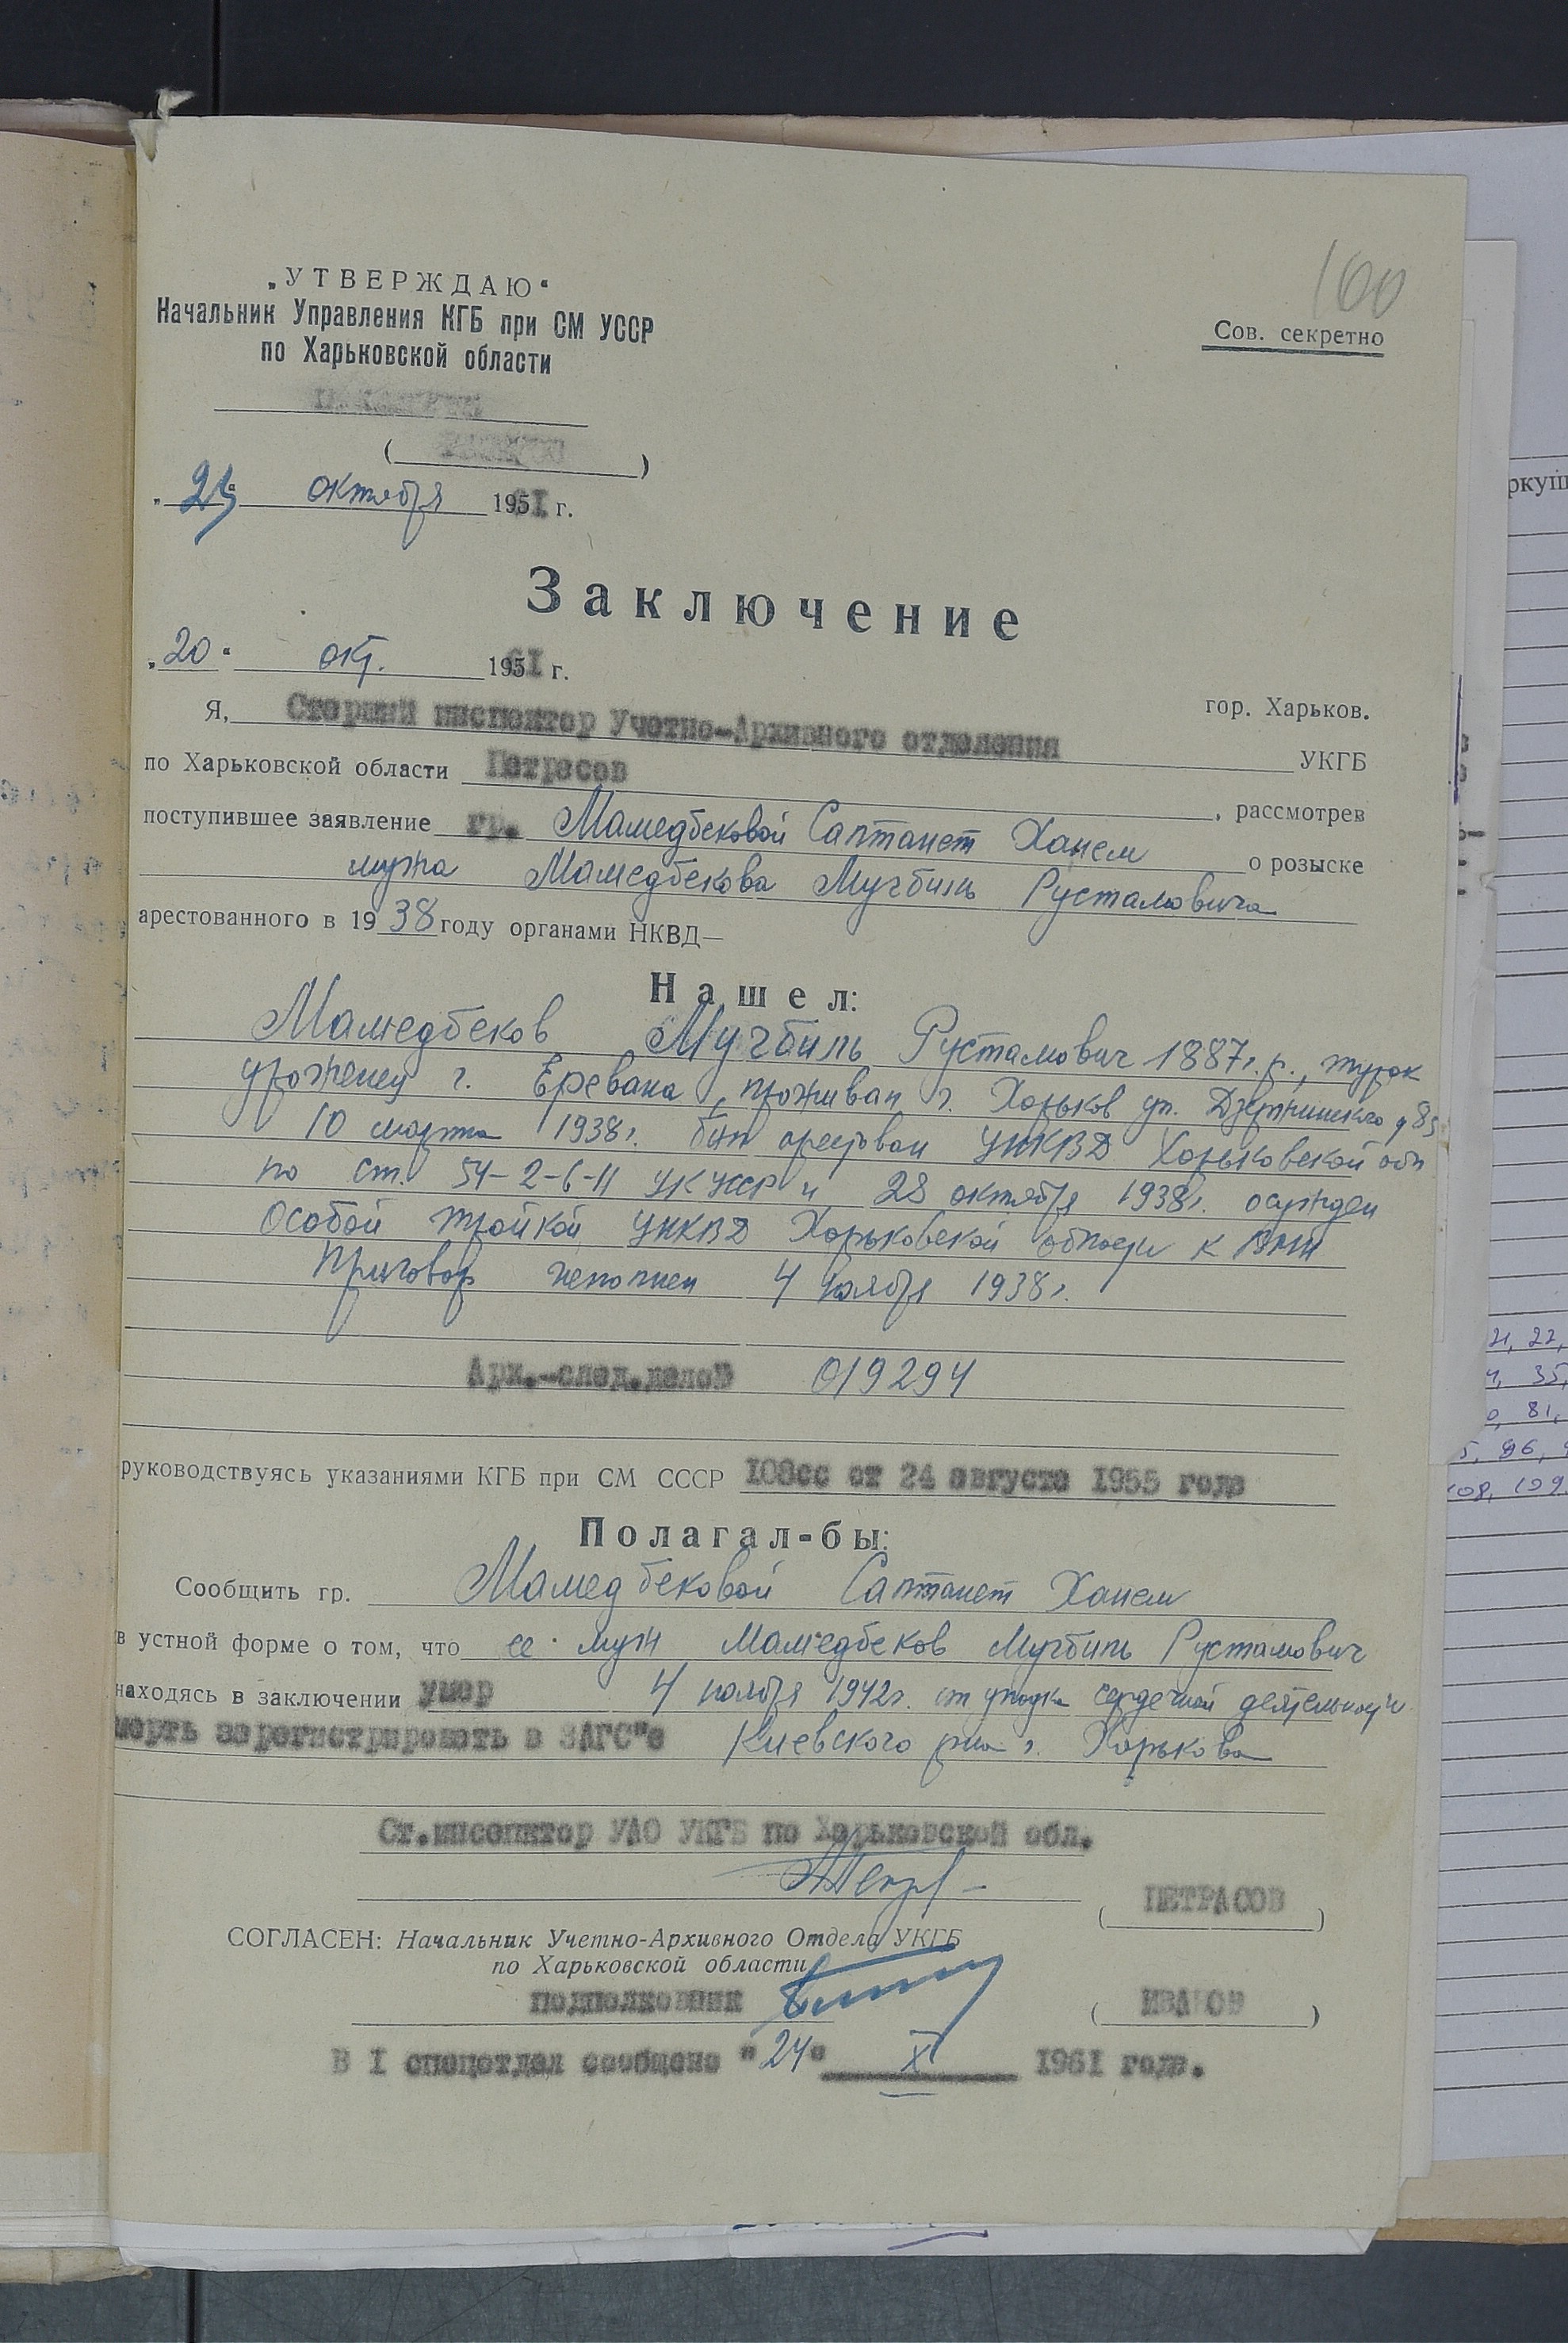 100
„УТВЕРЖДАЮ“
Начальник Управления КГБ при СМ УССР
по Харьковской области
Сов. секретно
( )
октября 1961 г.
Заключение
„20“ окт. 1961 г.
гор. Харьков.
Я, Старший инспектор Учетно-Архивного отделения УКГБ
по Харьковской области Петрасов, рассмотрев
поступившее заявление гр. Мамедбековой Салтанет Ханем о розыске
мужа Мамедбекова Мучбиль Рустамовича
арестованного в 1938 году органами НКВД—
Нашел:
Мамедбеков Мучбиль Рустамович 1887 г. р., турок
уроженец г. Еревана, проживал г. Харьков ул. Дзержинского
10 марта 1938 г. был арестован УНКВД Харьковской обл
по ст. 54-2-6-11 УК УССР и 28 октября 1938 г. осужден
Особой тройкой УНКВД Харьковской области к ВМН
Приговор исполнен 4 ноября 1938 г.
Арх.-след.дело№ 019294
руководствуясь указаниями КГБ при СМ СССР 108сс от 24 августа 1955 года
Полагал-бы:
Сообщить гр. Мамедбековой Салтанет Ханем
в устной форме о том, что ее муж Мамедбеков Мучбиль Рустамович
находясь в заключении умер 4 ноября 1942 г. от упадка сердечной деятельности
смерть зарегистрировать в ЗАГС"е Киевского р-на г. Харькова
Ст.инспектор УАО УКГБ по Харьковской обл.
( ПЕТРАСОВ )
СОГЛАСЕН: Начальник Учетно-Архивного Отдела УКГБ
по Харьковской области
подполковник ( ИВАНОВ )
В I спецотдел сообщено "24" X 1961 года.
ркуш
21, 22,
35,
81,
96,
108, 109